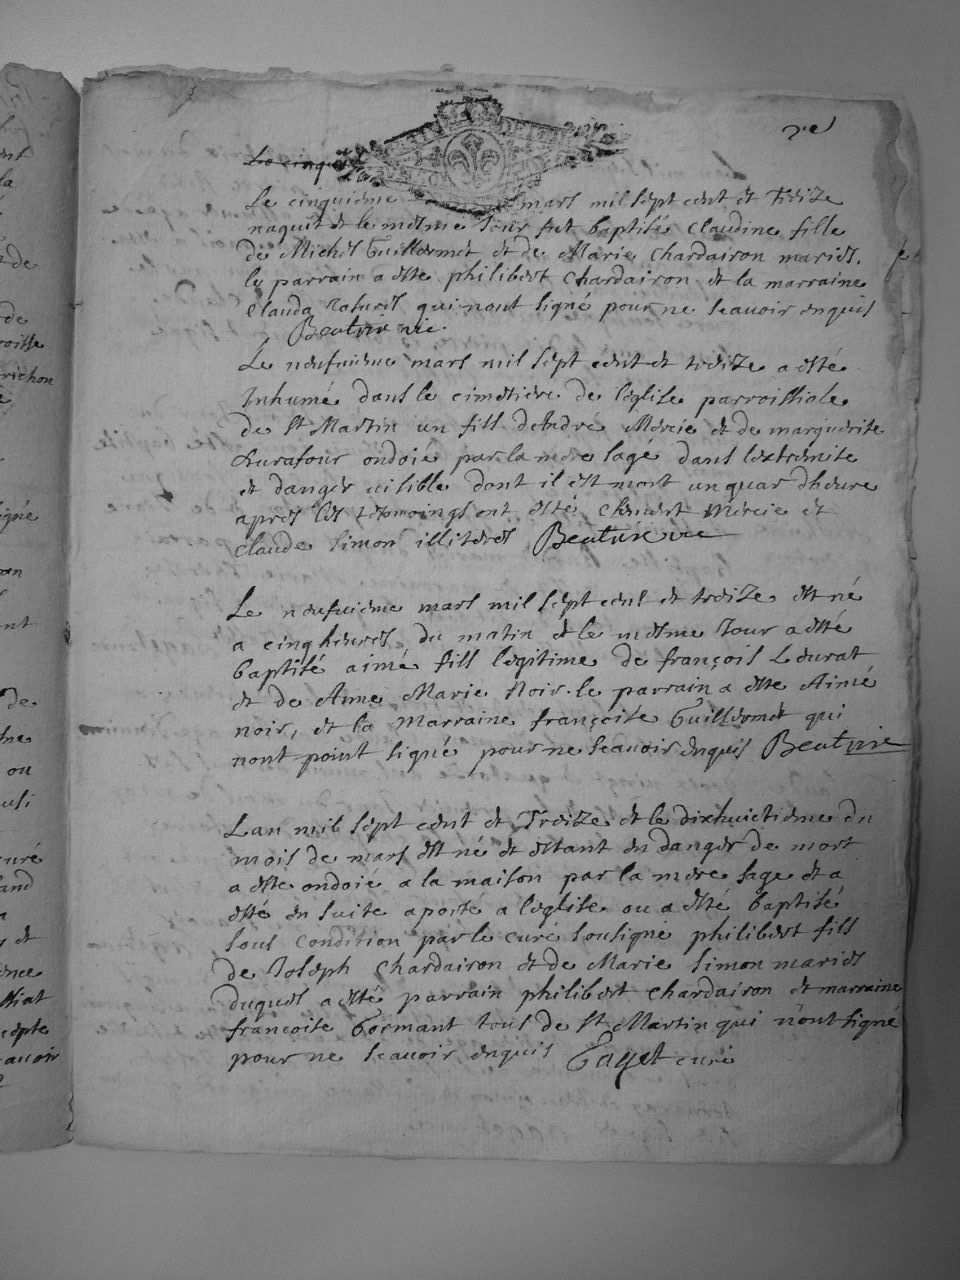 2e
Le cinqui
Le cinquieme mars mil sept cent et Treize
naquit et le mesme Jour fut baptisée Claudine fille
de Michel Guillermet et de Marie Chardairon mariés.
le parrain a esté philibert Chardairon et la marraine
Clauda qui nont signé pour ne scavoir enquis
Beatrix vic.
Le neufuieme mars mil sept cent et treize a esté
Inhumé dans le cimetiere de leglise parroissiale
de St Martin un fils dAndré Mercie et de marguerite
Durafour ondoié par la mere sage dans lextremite
et danger uisible dont il est mort un quar dheure
apres les tesmoings ont estés Clement Mercie et
claude simon illiteres Beatrix vic
Le neufuieme mars mil sept cent et treize est né
a cinq heures du matin et le mesme Jour a esté
baptisé aimé fils legitime de françois Leurat
et de Anne Marie Noir. le parrain a este Aimé
noir, et la Marraine françoise Guillermet qui
nont point signé pour ne scavoir enquis Beatrix
Lan mil sept cent et Treize et le dixhuictieme du
mois de mars est né et estant en danger de mort
a esté ondoié a la maison par la mere sage et a
esté en suite aporté a leglise ou a esté baptisé
sous condition par le curé sousigné philibert fils
de Joseph Chardairon et de Marie simon mariés
duquel a esté parrain philibert Chardairon et marraine
francoise Germant tous de St Martin qui n'ont signé
pour ne scauoir enquis Taget curé